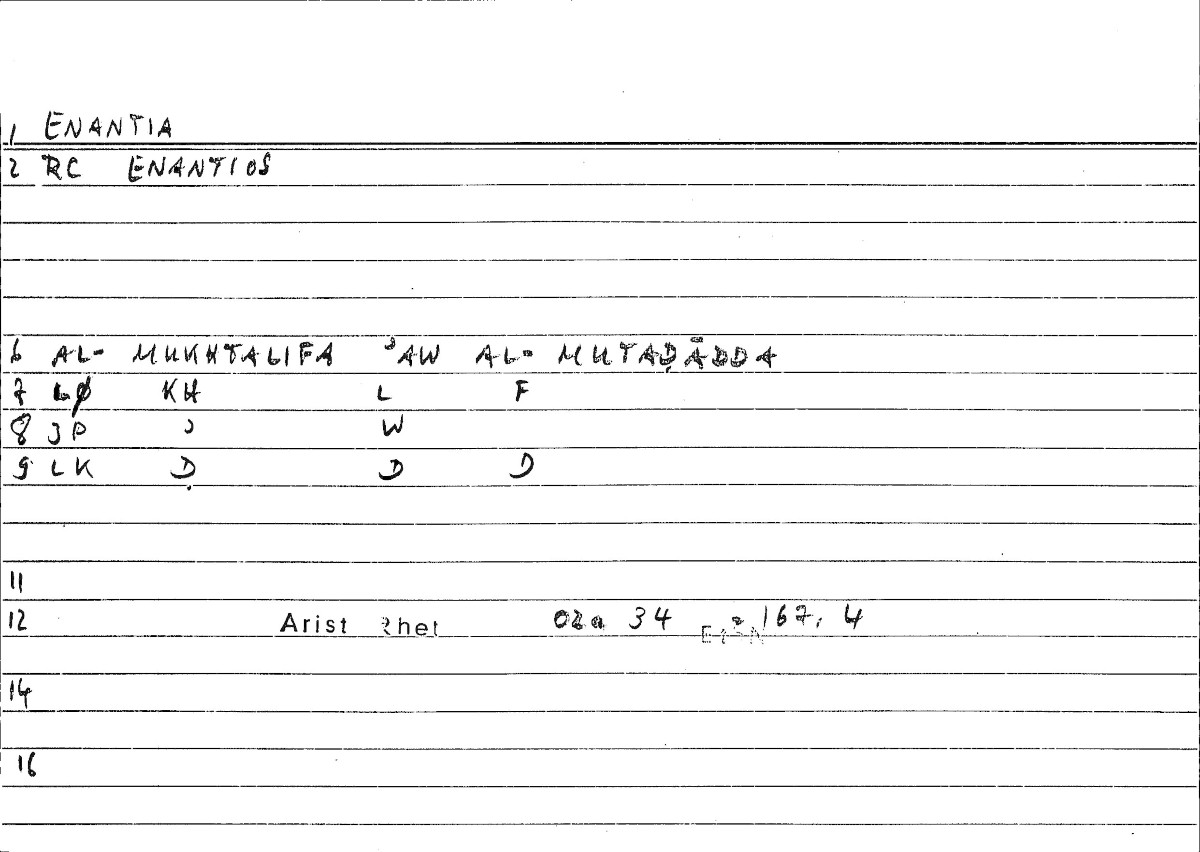 1 ENANTIA
2 RC ENANTIOS
6 AL- MUKHTALIFA ʾAW AL- MUTAḌĀDDA
7 LØ KH L F
8 JP ʾ W
9 LK Ḍ D D
11
12 Arist Rhet 02a 34 = 167, 4
14
16